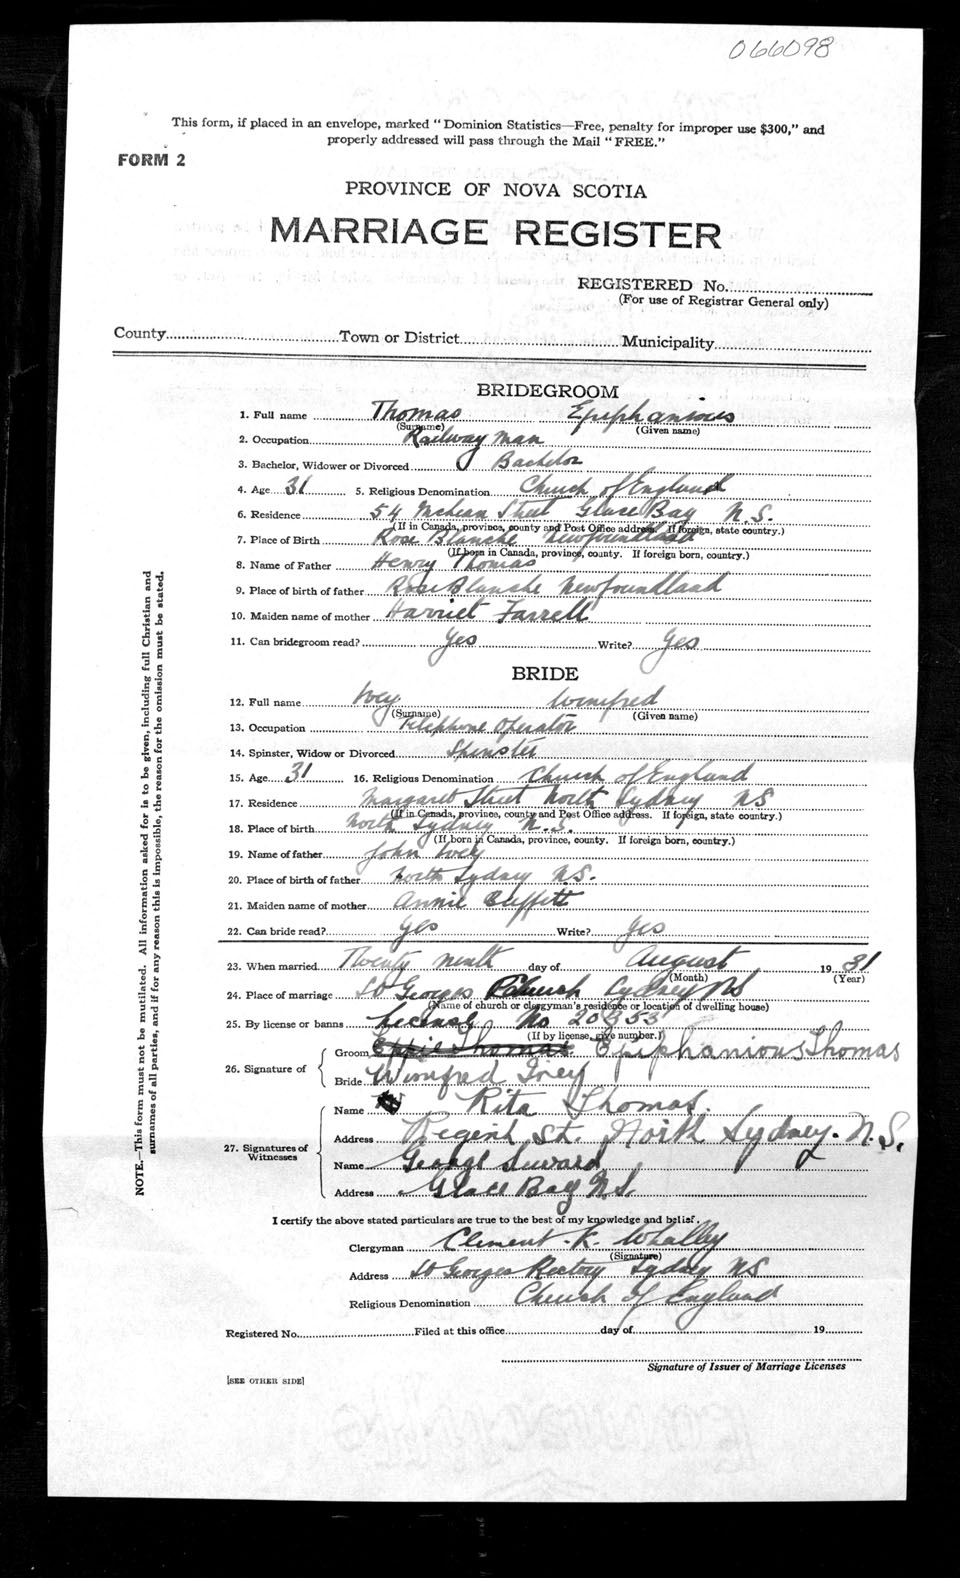 066098
This form, if placed in an envelope, marked "Dominion Statistics—Free, penalty for improper use $300," and
properly addressed will pass through the Mail "FREE."
FORM 2
PROVINCE OF NOVA SCOTIA
MARRIAGE REGISTER
REGISTERED No.
(For use of Registrar General only)
County Town or District Municipality
BRIDEGROOM
1. Full name Thomas Epiphanious
(Surname) (Given name)
2. Occupation Railway man
3. Bachelor, Widower or Divorced Bachelor
4. Age 31 5. Religious Denomination Church of England
6. Residence 54 McLean Street Glace Bay N.S.
(If in Canada, province, county and Post Office address. If foreign, state country.)
7. Place of Birth Rose Blanche Newfoundland
(If born in Canada, province, county. If foreign born, country.)
8. Name of Father Henry Thomas
9. Place of birth of father Rose Blanche Newfoundland
10. Maiden name of mother Harriet Farrell
11. Can bridegroom read? Yes Write? Yes
BRIDE
12. Full name Ivey Winifred
(Surname) (Given name)
13. Occupation Telephone Operator
14. Spinster, Widow or Divorced Spinster
15. Age 31 16. Religious Denomination Church of England
17. Residence Margaret Street North Sydney NS
(If in Canada, province, county and Post Office address. If foreign, state country.)
18. Place of birth North Sydney N.S.
(If born in Canada, province, county. If foreign born, country.)
19. Name of father John Ivey
20. Place of birth of father North Sydney N.S.
21. Maiden name of mother Annie Cliffett
22. Can bride read? Yes Write? Yes
23. When married Twenty ninth day of August 1931
(Month) (Year)
24. Place of marriage St Georges Church Sydney NS
(Name of church or clergyman's residence or location of dwelling house)
25. By license or banns License No 20853
(If by license, give number.)
26. Signature of
Groom Effie Thomas Epiphanious Thomas
Bride Winifred Ivey
27. Signatures of Witnesses
Name Rita Thomas.
Address Regent St. North Sydney. N.S.
Name George Seward
Address Glace Bay N.S.
I certify the above stated particulars are true to the best of my knowledge and belief.
Clergyman Clement K. Whalley
(Signature)
Address St Georges Rectory Sydney NS
Religious Denomination Church of England
Registered No. Filed at this office day of 19
Signature of Issuer of Marriage Licenses
[SEE OTHER SIDE]
NOTE.—This form must not be mutilated. All information asked for is to be given, including full Christian and
surnames of all parties, and if for any reason this is impossible, the reason for the omission must be stated.